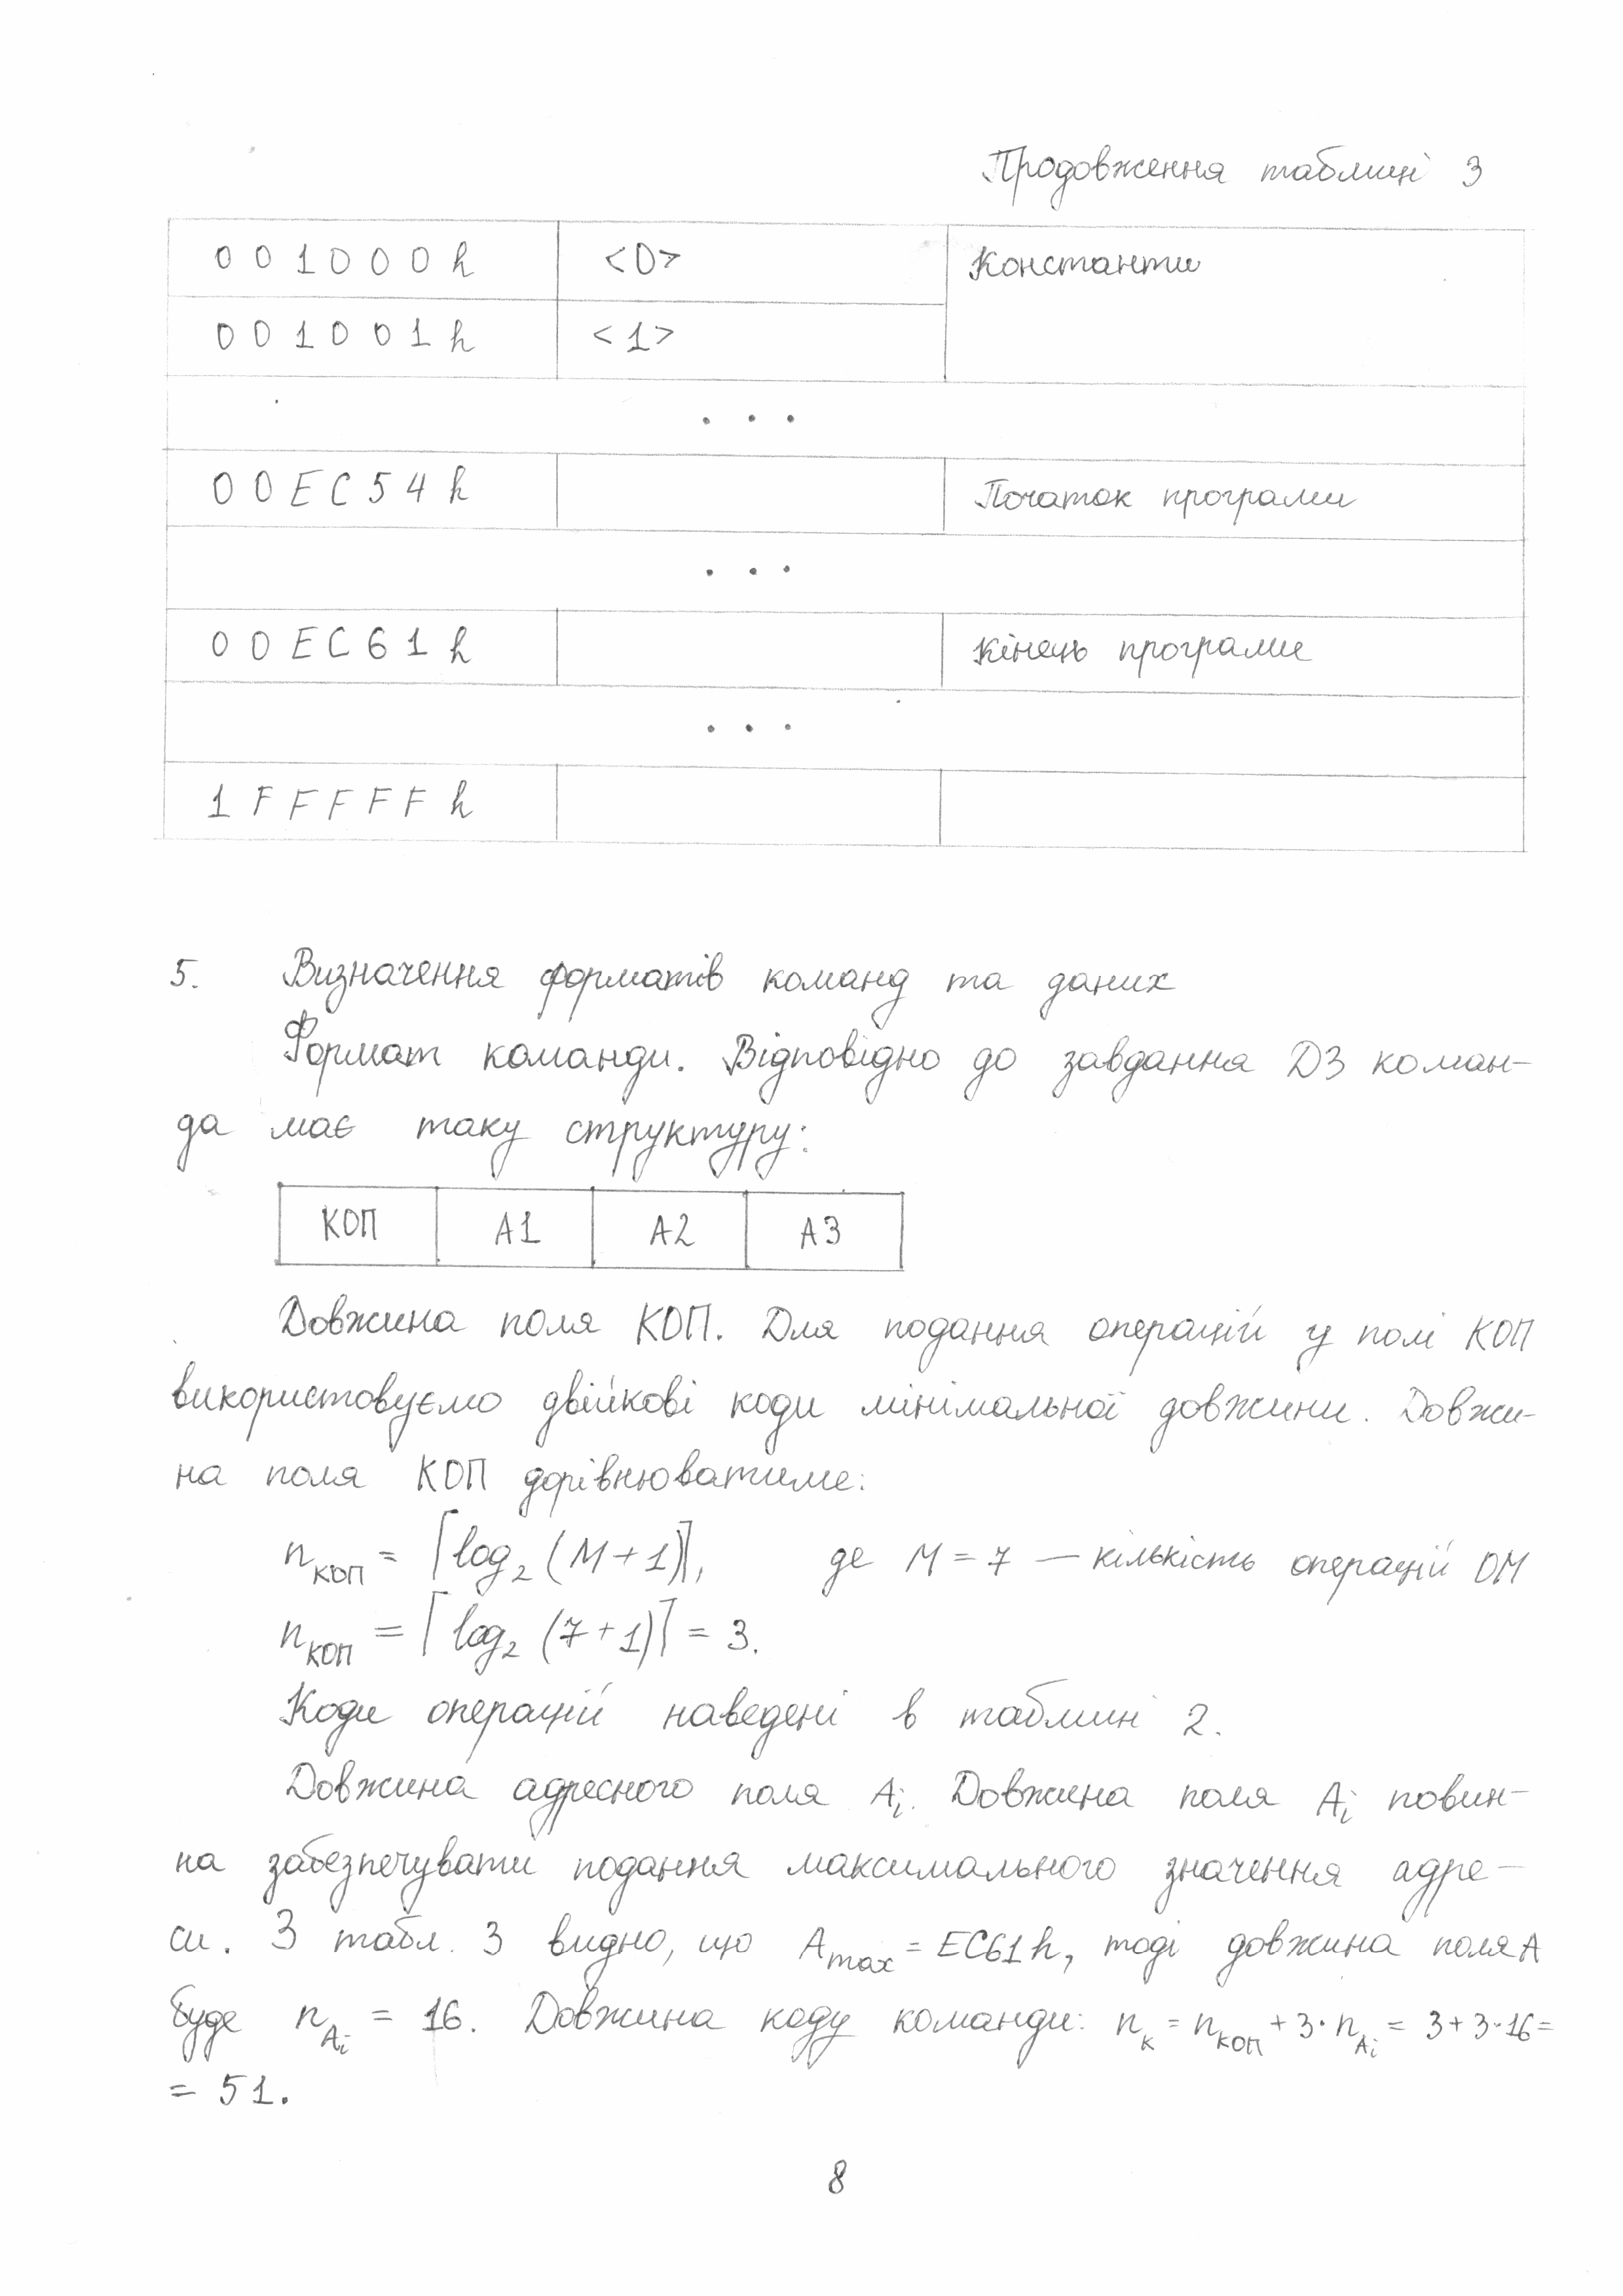 Продовження таблиці 3
001000h <0> Константи
001001h <1>
. . .
00EC54h Початок програми
. . .
00EC61h Кінець програми
. . .
1FFFFFh
5. Визначення форматів команд та даних
Формат команди. Відповідно до завдання ДЗ коман-
да має таку структуру:
КОП А1 А2 А3
Довжина поля КОП. Для подання операцій у полі КОП
використовуємо двійкові коди мінімальної довжини. Довжи-
на поля КОП дорівнюватиме:
n_КОП = ⌈log₂(M+1)⌉, де M = 7 — кількість операцій ОМ
n_КОП = ⌈log₂(7+1)⌉ = 3.
Коди операцій наведені в таблиці 2.
Довжина адресного поля Aᵢ. Довжина поля Aᵢ повин-
на забезпечувати подання максимального значення адре-
си. З табл. 3 видно, що A_max = EC61h, тоді довжина поля A
буде n_Aᵢ = 16. Довжина коду команди: n_к = n_КОП + 3·n_Aᵢ = 3+3·16=
= 51.
8